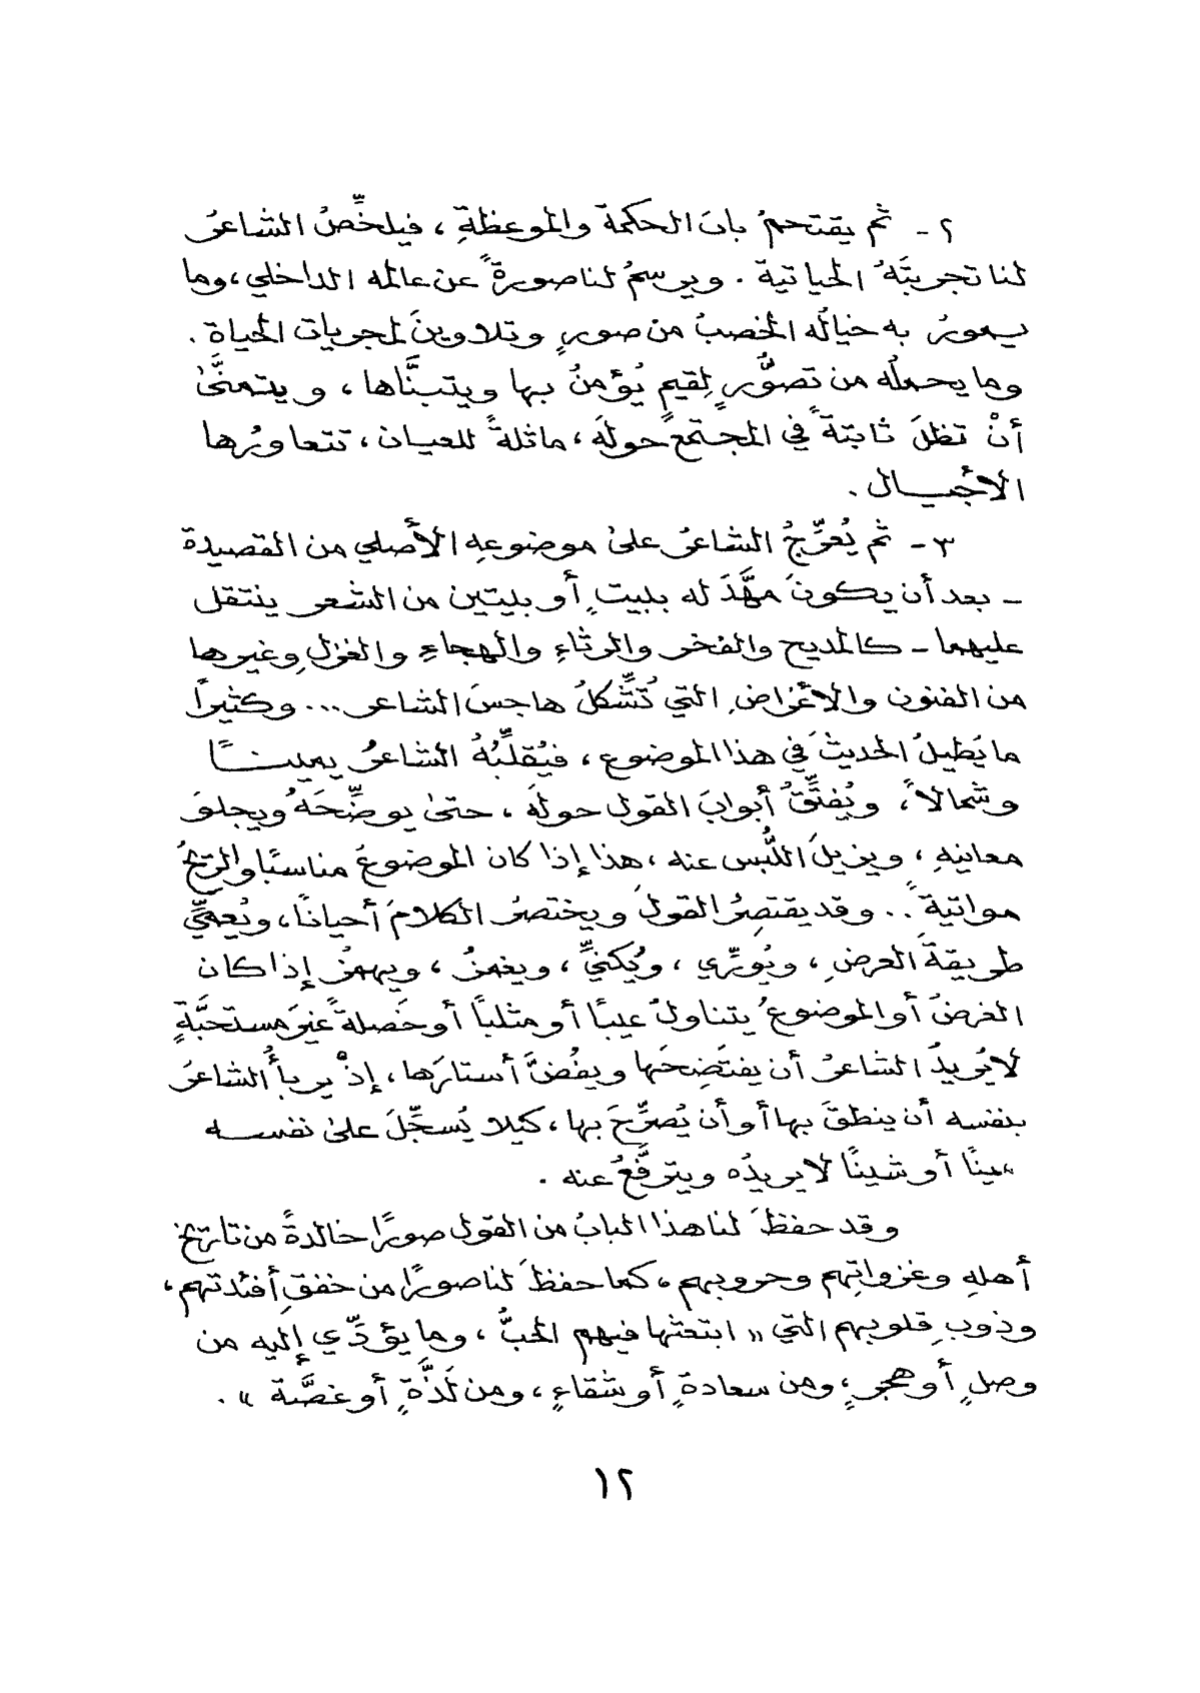 ٢ - ثم يقتحمُ بابَ الحكمة والموعظةِ ، فيلخِّصُ الشاعرُ
لنا تجربتَهُ الحياتية . ويرسمُ لنا صورةً عن عالمه الداخلي ، وما
يمورُ به خيالُه الخصبُ من صورٍ وتلاوينَ لمجريات الحياة .
وما يحملُه من تصوُّرٍ لِقيمٍ يُؤمنُ بها ويتبنَّاها ، ويتمنَّىٰ
أنْ تظلَ ثابتةً في المجتمعِ حولهَ ، ماثلةً للعيان ، تتعاورُها
الأجيال .
٣ - ثم يُعرِّجُ الشاعرُ علىٰ موضوعِهِ الأصلي من القصيدة
- بعد أن يكونَ مهَّدَ له ببيتٍ أو بيتين من الشعر ينتقل
عليهما - كالمديح والفخر والرثاءِ والهجاءِ والغزلِ وغيرها
من الفنون والأغراضِ التي تُشِّكلُ هاجسَ الشاعر ... وكثيراً
ما يُطيلُ الحديثَ في هذا الموضوع ، فيُقلِّبُهُ الشاعرُ يمينًا
وشمالاً ، ويُفتِّقُ أبوابَ القول حولهَ ، حتىٰ يوضِّحَهُ ويجلوَ
معانيهِ ، ويزيلَ اللُّبس عنه ، هذا إذا كان الموضوعَ مناسبًا والريحُ
مواتيةً .. وقد يقتصِرُ القولَ ويختصرُ الكلامَ أحيانًا ، ويُعمِّي
طريقةَ العرضِ ، ويُورِّي ، ويُكنيِّ ، ويغمزُ ، ويهمزُ إذا كان
الغرضُ أو الموضوعُ يتناولُ عيبًا أو مثلبًا أو خَصلةً غيرَ مستحبَّةٍ
لا يُريدُ الشاعرُ أن يفتَضِحَها ويفُضَّ أستارَها ، إذْ يربأُ الشاعرُ
بنفسه أن ينطقَ بها أو أن يُصرِّحَ بها ، كيلا يُسجِّلَ علىٰ نفسه
أو شينًا لا يريدُه ويترفَّعُ عنه .
وقد حفظَ لنا هذا البابُ من القول صورًا خالدةً من تاريخ
أهلهِ وغزواتِهم وحروبهم ، كما حفظَ لنا صورًا من خفقِ أفئدتهم ،
وذوبِ قلوبهم التي « ابتعثها فيهم الحبُّ ، وما يؤدِّي إليه من
وصلٍ أو هجرٍ ، ومن سعادةٍ أو شقاءٍ ، ومن لَذَّةٍ أو غصَّة » .
١٢